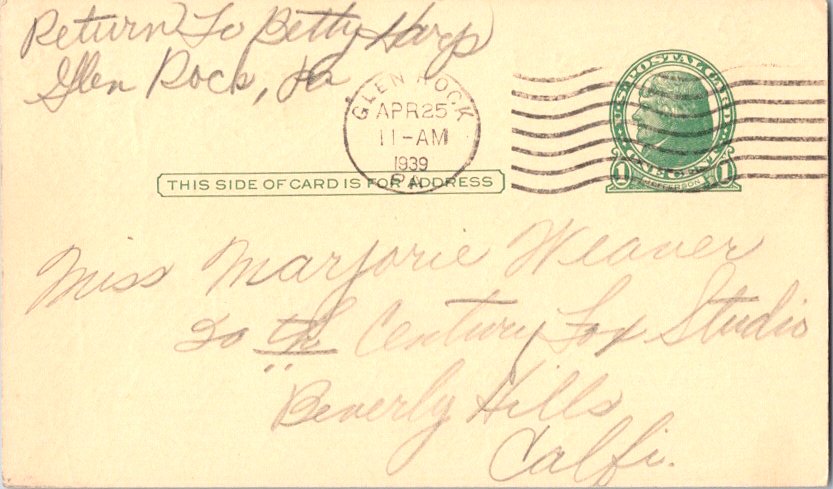 Return To Betty Harp
Glen Rock, Pa
GLEN ROCK
APR 25
11-AM
1939
PA.
U.S. POSTAL CARD
1 JEFFERSON 1
THIS SIDE OF CARD IS FOR ADDRESS
Miss Marjorie Weaver
20 th Century Fox Studio
Beverly Hills
Calfi.